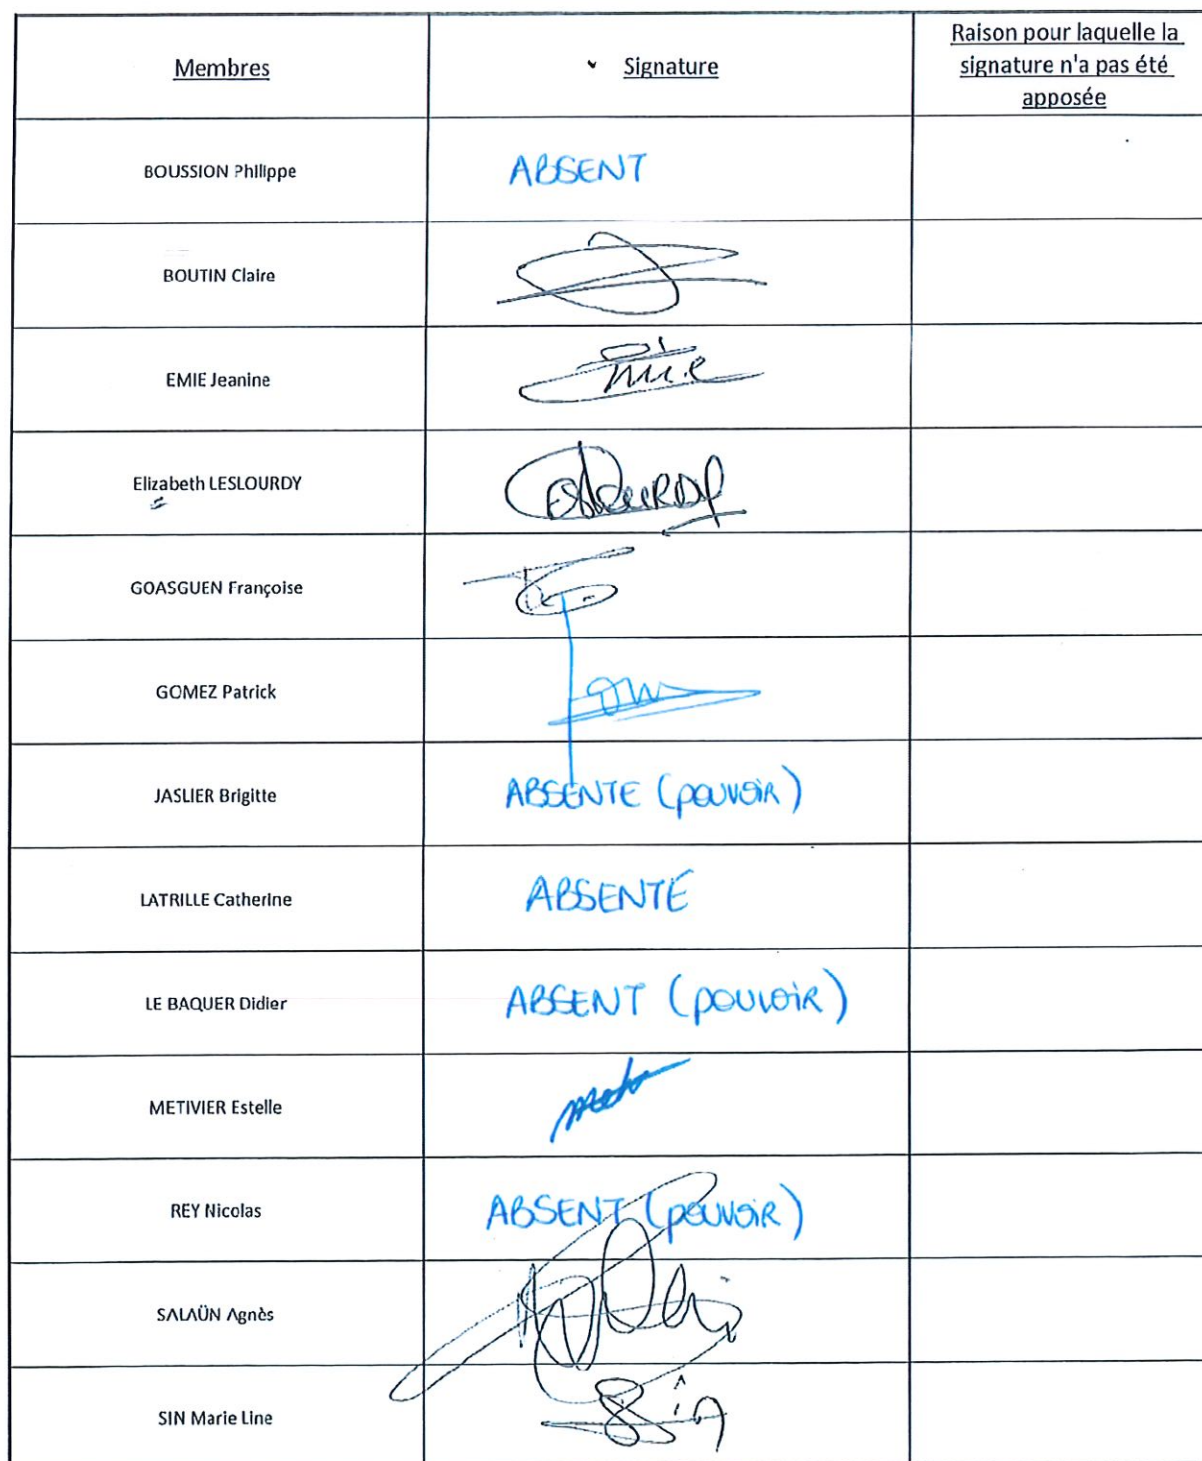 Membres
Signature
Raison pour laquelle la
signature n'a pas été
apposée
BOUSSION Philippe
ABSENT
BOUTIN Claire
EMIE Jeanine
Emie
Elizabeth LESLOURDY
GOASGUEN Françoise
GOMEZ Patrick
JASLIER Brigitte
ABSENTE (pouvoir)
LATRILLE Catherine
ABSENTE
LE BAQUER Didier
ABSENT (pouvoir)
METIVIER Estelle
REY Nicolas
ABSENT (pouvoir)
SALAÜN Agnès
SIN Marie Line
Sin